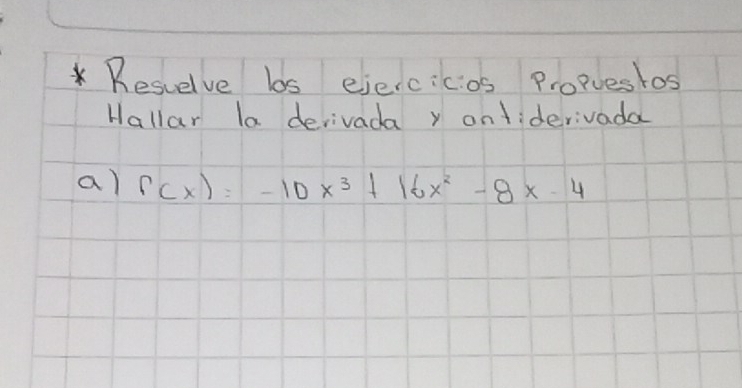 * Resuelve los ejercicios Propuestos
Hallar la derivada y antiderivada
a) f(x) = -10x³ + 16x² - 8x - 4